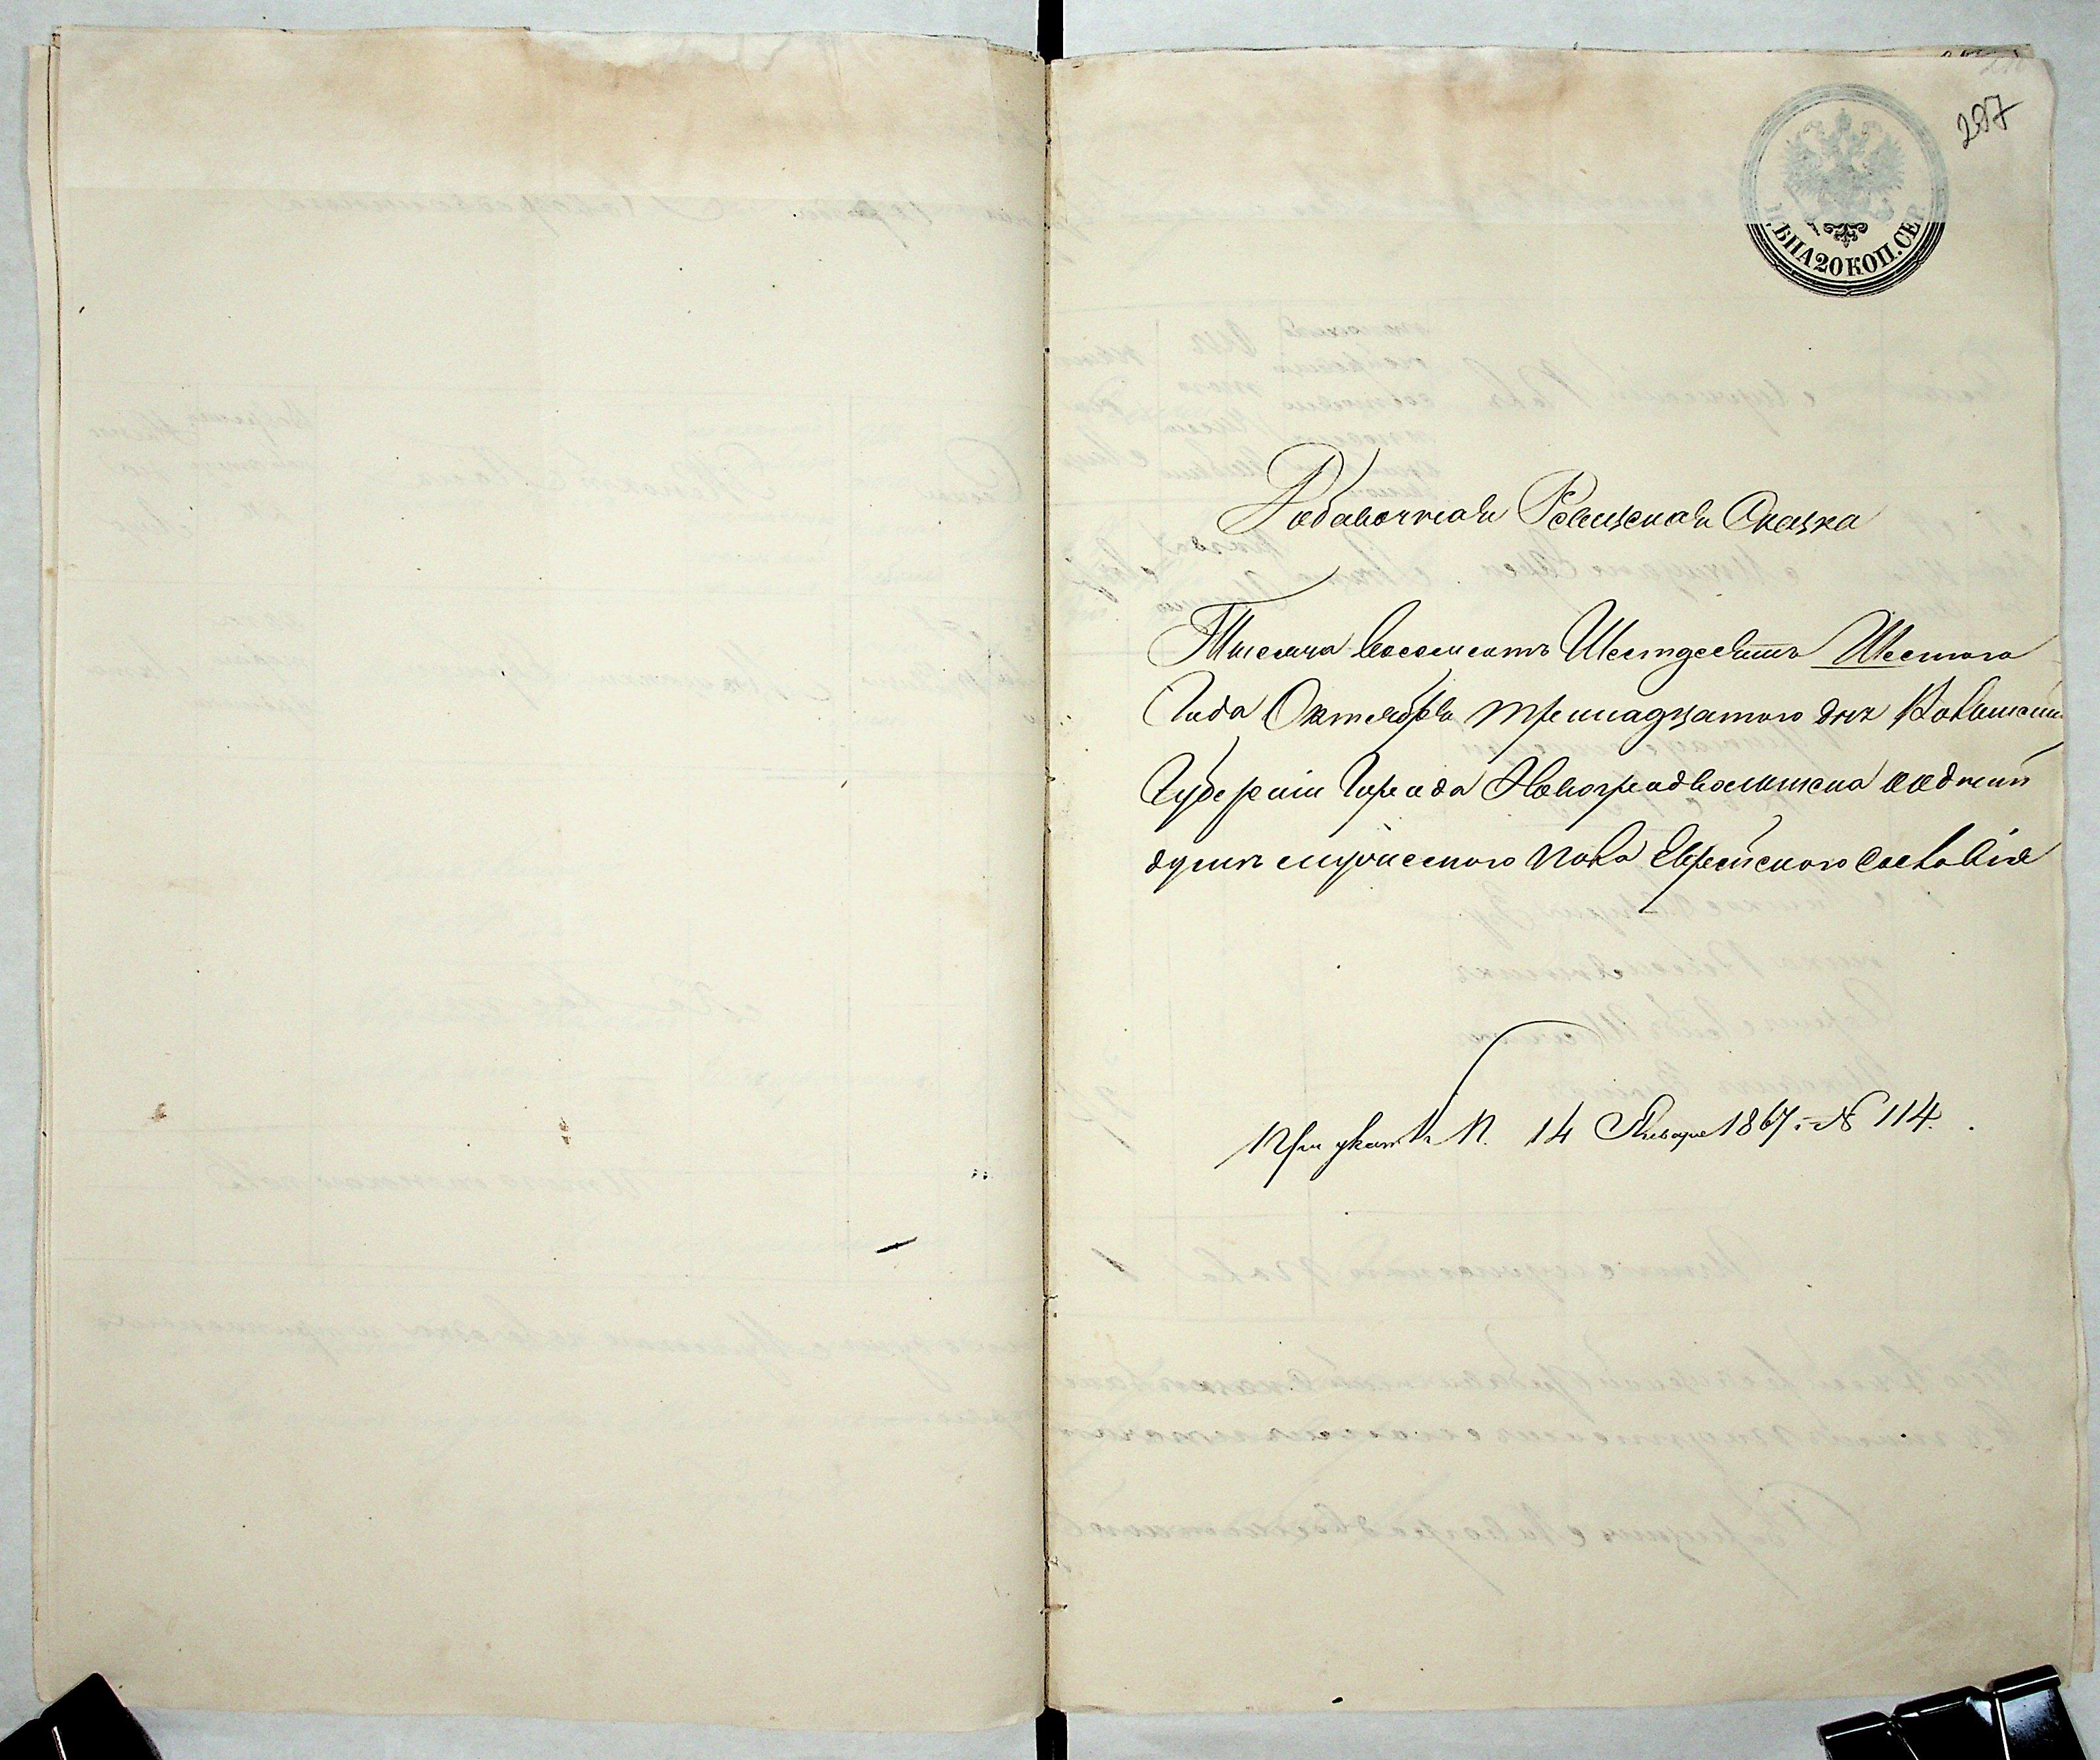 297
ЦѢНА 20 КОП. СЕР.
Добавочная Ревизская Сказка
Тысяча восемсотъ Шестдесятъ Шестого
Года Октября тринадцатого дня Волынской
Губерніи Города Новоградволынска о одной
души мужеского пола Еврейского сословія
При указѣ П. 14 Января 1867. № 114.